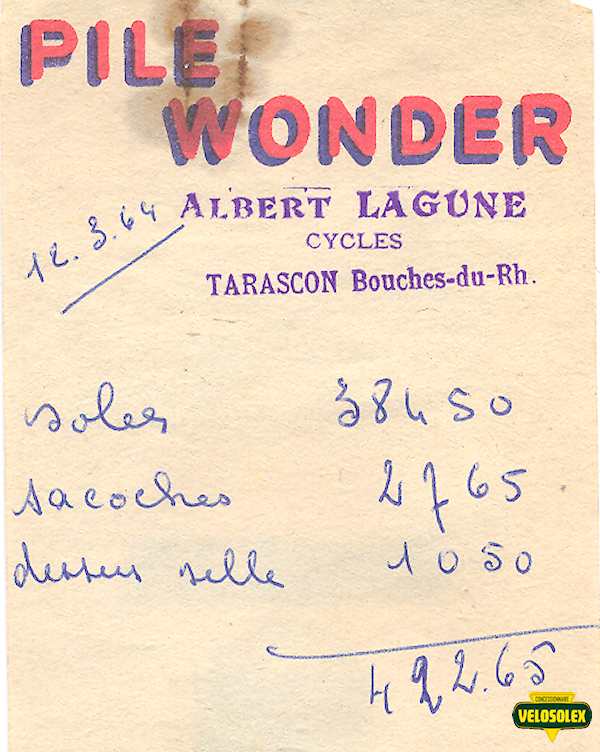 PILE
WONDER
ALBERT LAGUNE
12.3.64
CYCLES
TARASCON Bouches-du-Rh.
solex 384 50
sacoches 27 65
dessus selle 10 50
422.65
CONCESSIONNAIRE
VELOSOLEX